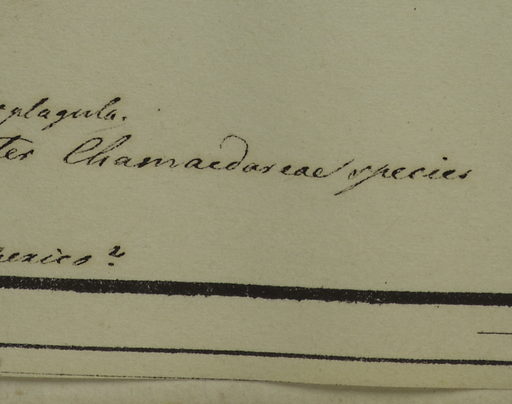 plagula.
ter Chamaedoreae species
Mexico?